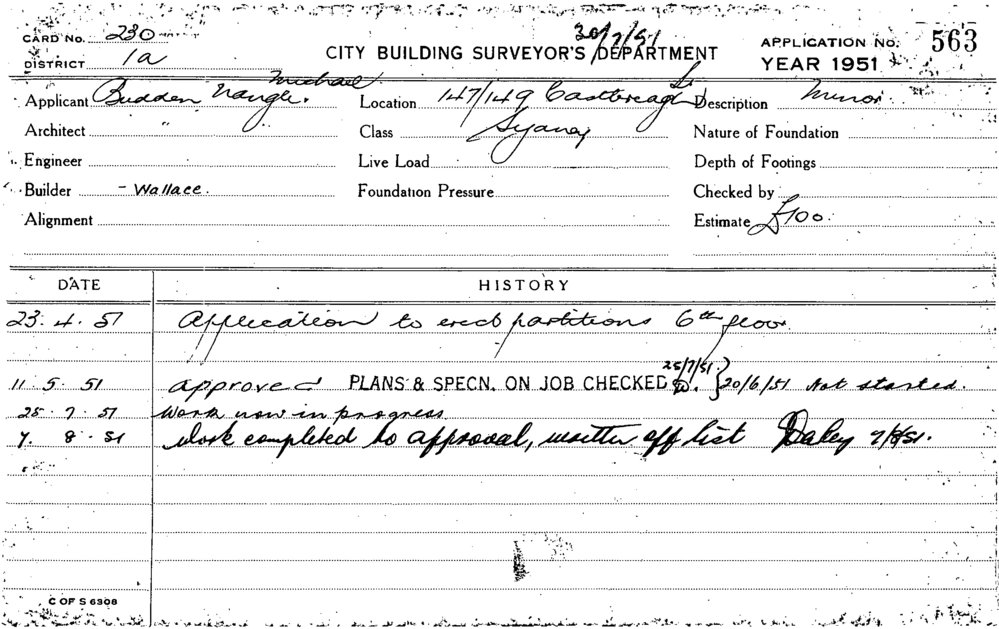 CARD NO. 230
30/7/51
CITY BUILDING SURVEYOR'S DEPARTMENT
APPLICATION NO. 563
DISTRICT 1a
YEAR 1951
Applicant Budden Nangle. Michael
Location 147/149 Castlereagh St
Description Minor
Architect "
Class Sydney
Nature of Foundation
Engineer
Live Load
Depth of Footings
Builder - Wallace.
Foundation Pressure
Checked by
Alignment
Estimate £100.
DATE HISTORY
23. 4. 51 Application to erect partitions 6th floor.
11. 5. 51 approved PLANS & SPECN. ON JOB CHECKED 25/7/51 } 20/6/51 Not started.
25. 7. 51 Work now in progress
7. 8. 51 Work completed to approval, written off list Daley 7/8/51.
C OF S 6308